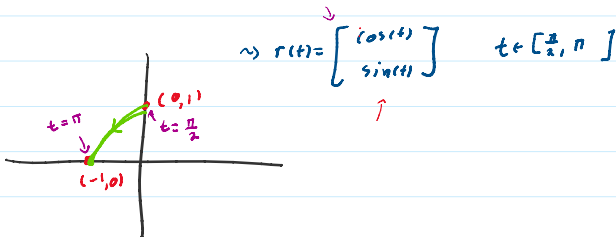 ~> r(t) = [cos(t)
sin(t)] t ∈ [π/2, π]
(0,1)
t = π
t = π/2
(-1,0)